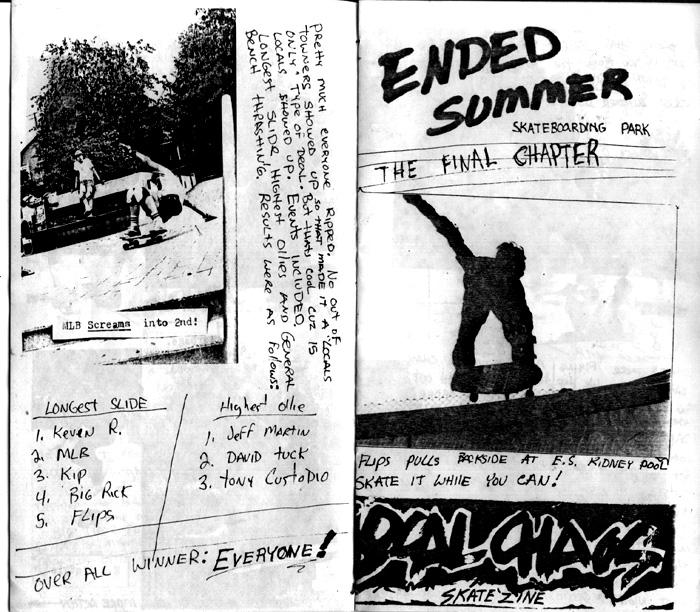 Pretty much everyone Ripped. No out of
towners showed up so that made it a "locals
only" type of deal. But thats cool cuz 15
locals showed up. Events included,
longest slide, highest ollies and general
bench thrashing. Results were as follows:
MLB Screams into 2nd!
LONGEST SLIDE
1. Keven R.
2. MLB
3. Kip
4. Big Rick
5. Flips
Highest Ollie
1. Jeff Martin
2. David Tuck
3. Tony Custodio
OVER ALL WINNER: EVERYONE!
ENDED
SUMMER
SKATEBOARDING PARK
THE FINAL CHAPTER
FLIPS PULLS BACKSIDE AT E.S. KIDNEY POOL
SKATE IT WHILE YOU CAN!
LOCAL CHAOS
SKATE'ZINE